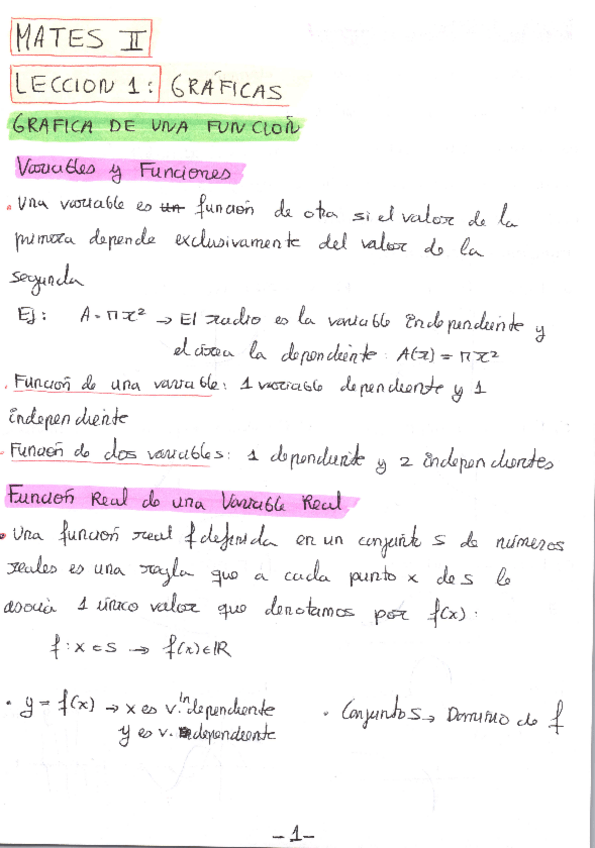 MATES II
LECCION 1: GRÁFICAS
GRAFICA DE UNA FUNCIOÑ
Variables y Funciones
. Una variable es un función de otra si el valor de la
primera depende exclusivamente del valor de la
segunda
Ej: A = πr² → El radio es la variable independiente y
el área la dependiente: A(r) = πr²
. Función de una variable: 1 variable dependiente y 1
independiente
. Función de dos variables: 1 dependiente y 2 independientes
Función Real de una Variable Real
• Una función real f definida en un conjunto S de números
reales es una regla que a cada punto x de S le
asocia 1 único valor que denotamos por f(x):
f: x ∈ S → f(x) ∈ IR
• y = f(x) → x es v. independiente . Conjunto S → Dominio de f
y es v. dependiente
-1-